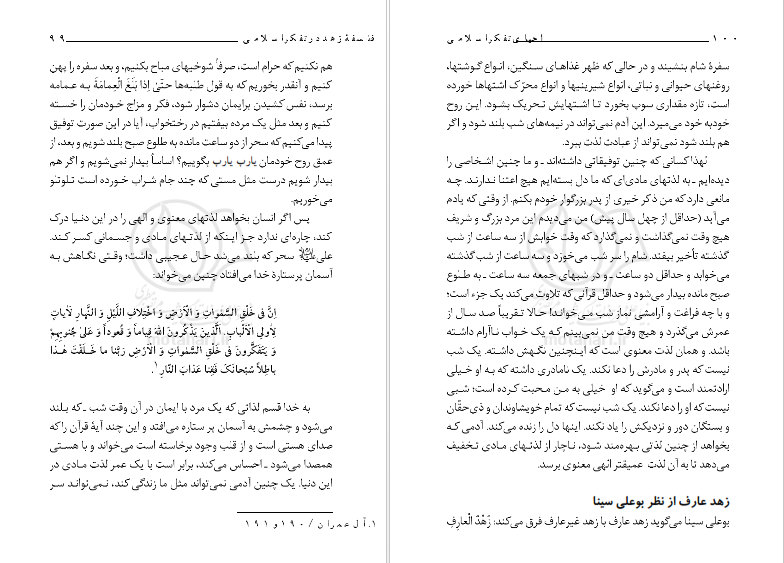 فلسفهٔ زهد در تفکر اسلامی ۹۹
هم نکنیم که حرام است، صرفاً شوخیهای مباح بکنیم، و بعد سفره را پهن
کنیم و آنقدر بخوریم که به قول طلبه‌ها حَتّیٰ اِذا بَلَغَ الْعِمامَةَ به عمامه
برسد، نفس کشیدن برایمان دشوار شود، فکر و مزاج خودمان را خسته
کنیم و بعد مثل یک مرده بیفتیم در رختخواب، آیا در این صورت توفیق
پیدا می‌کنیم که سحر از دو ساعت مانده به طلوع صبح بلند شویم و بعد، از
عمق روح خودمان یارب یارب بگوییم؟ اساساً بیدار نمی‌شویم و اگر هم
بیدار شویم درست مثل مستی که چند جام شراب خورده است تلوتلو
می‌خوریم.
پس اگر انسان بخواهد لذتهای معنوی و الهی را در این دنیا درک
کند، چاره‌ای ندارد جز اینکه از لذتهای مادی و جسمانی کسر کند.
علی علیه‌السلام سحر که بلند می‌شد حال عجیبی داشت؛ وقتی نگاهش به
آسمان پرستارهٔ خدا می‌افتاد چنین می‌خواند:
اِنَّ فی خَلْقِ السَّمٰواتِ وَ الْاَرْضِ وَ اخْتِلافِ اللَّیْلِ وَ النَّهارِ لَآیاتٍ
لِاُولِی الْاَلْبابِ. اَلَّذینَ یَذْکُرونَ اللهَ قِیاماً وَ قُعوداً وَ عَلیٰ جُنوبِهِمْ
وَ یَتَفَکَّرونَ فی خَلْقِ السَّمٰواتِ وَ الْاَرْضِ رَبَّنا ما خَلَقْتَ هٰذا
باطِلاً سُبْحانَکَ فَقِنا عَذابَ النّارِ ۱.
به خدا قسم لذاتی که یک مرد با ایمان در آن وقت شب ـ که بلند
می‌شود و چشمش به آسمان پر ستاره می‌افتد و این چند آیهٔ قرآن را که
صدای هستی است و از قلب وجود برخاسته است می‌خواند و با هستی
همصدا می‌شود ـ احساس می‌کند، برابر است با یک عمر لذت مادی در
این دنیا. یک چنین آدمی نمی‌تواند مثل ما زندگی کند، نمی‌تواند سر
۱. آل عمران / ۱۹۰ و ۱۹۱
۱۰۰ احیای تفکر اسلامی
سفرهٔ شام بنشیند و در حالی که ظهر غذاهای سنگین، انواع گوشتها،
روغنهای حیوانی و نباتی، انواع شیرینیها و انواع محرّک اشتهاها خورده
است، تازه مقداری سوپ بخورد تا اشتهایش تحریک بشود. این روح
خودبه خود می‌میرد. این آدم نمی‌تواند در نیمه‌های شب بلند شود و اگر
هم بلند شود نمی‌تواند از عبادت لذت ببرد.
لهذا کسانی که چنین توفیقاتی داشته‌اند ـ و ما چنین اشخاصی را
دیده‌ایم ـ به لذتهای مادی‌ای که ما دل بسته‌ایم هیچ اعتنا ندارند. چه
مانعی دارد که من ذکر خیری از پدر بزرگوار خودم بکنم. از وقتی که یادم
می‌آید (حداقل از چهل سال پیش) من می‌دیدم این مرد بزرگ و شریف
هیچ وقت نمی‌گذاشت و نمی‌گذارد که وقت خوابش از سه ساعت از شب
گذشته تأخیر بیفتد. شام را سر شب می‌خورد و سه ساعت از شب گذشته
می‌خوابد و حداقل دو ساعت ـ و در شبهای جمعه سه ساعت ـ به طلوع
صبح مانده بیدار می‌شود و حداقل قرآنی که تلاوت می‌کند یک جزء است؛
و با چه فراغت و آرامشی نماز شب می‌خواند! حالا تقریباً صد سال از
عمرش می‌گذرد و هیچ وقت من نمی‌بینم که یک خواب ناآرام داشته
باشد. و همان لذت معنوی است که اینچنین نگهش داشته. یک شب
نیست که پدر و مادرش را دعا نکند. یک نامادری داشته که به او خیلی
ارادتمند است و می‌گوید که او خیلی به من محبت کرده است؛ شبی
نیست که او را دعا نکند. یک شب نیست که تمام خویشاوندان و ذی‌حقّان
و بستگان دور و نزدیکش را یاد نکند. اینها دل را زنده می‌کند. آدمی که
بخواهد از چنین لذتی بهره‌مند شود، ناچار از لذتهای مادی تخفیف
می‌دهد تا به آن لذت عمیقتر الهی معنوی برسد.
زهد عارف از نظر بوعلی سینا
بوعلی سینا می‌گوید زهد عارف با زهد غیرعارف فرق می‌کند: زُهْدُ الْعارِفِ
motahari.ir
motahari.ir